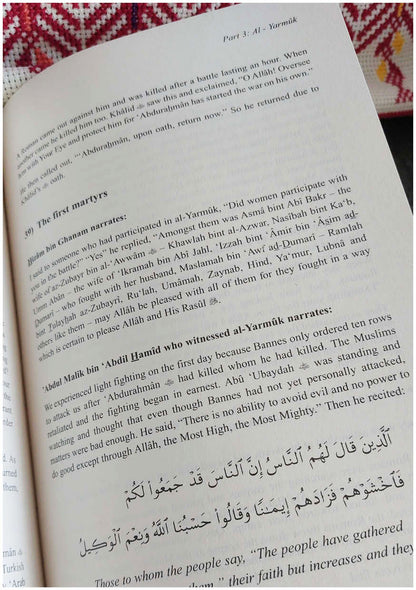 Part 3: Al - Yarmûk
A Roman came out against him and was killed after a battle lasting an hour. When
another came he killed him too. Khâlid saw this and exclaimed, "O Allâh! Oversee
him with Your Eye and protect him for 'Abduraḥmân has started the war on his own."
He then called out, "'Abduraḥmân, upon oath, return now." So he returned due to
Khâlid's oath.
39) The first martyrs
Hizâm bin Ghanam narrates:
I said to someone who had participated in al-Yarmûk, "Did women participate with
you in the battle?" "Yes" he replied, "Amongst them was Asmâ bint Abî Bakr – the
wife of az-Zubayr bin al-'Awwâm – Khawlah bint al-Azwar, Nasîbah bint Ka'b,
Umm Abân – the wife of 'Ikramah bin Abî Jahl, 'Izzah bint 'Âmir bin 'Âṣim aḍ-
Ḍumarî – who fought with her husband, Maslamah bin 'Awf aḍ-Ḍumarî – Ramlah
bint Ṭulayḥah az-Zubayrî, Ru'lah, Umâmah, Zaynab, Hind, Ya'mur, Lubnâ and
others like them – may Allâh be pleased with all of them for they fought in a way
which is certain to please Allâh and His Rasûl
'Abdul Malik bin 'Abdil Ḥamîd who witnessed al-Yarmûk narrates:
We experienced light fighting on the first day because Bannes only ordered ten rows
to attack us after 'Abdurahmân had killed whom he had killed. The Muslims
retaliated and the fighting began in earnest. Abû 'Ubaydah was standing and
watching and thought that even though Bannes had not yet personally attacked,
matters were bad enough. He said, "There is no ability to avoid evil and no power to
do good except through Allâh, the Most High, the Most Mighty." Then he recited:
ٱلَّذِينَ قَالَ لَهُمُ ٱلنَّاسُ إِنَّ ٱلنَّاسَ قَدْ جَمَعُوا۟ لَكُمْ
فَٱخْشَوْهُمْ فَزَادَهُمْ إِيمَـٰنًا وَقَالُوا۟ حَسْبُنَا ٱللَّهُ وَنِعْمَ ٱلْوَكِيلُ
Those to whom the people say, "The people have gathered
them," their faith but increases and they